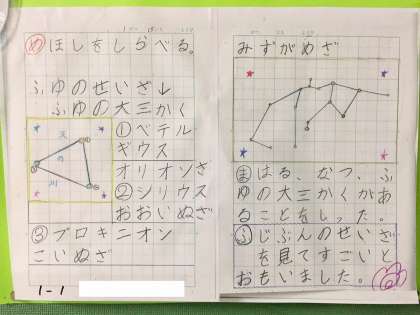 めほしをしらべる。
ふゆのせいざ↓
ふゆの大三かく
天
の
川
①ベテル
ギウス
オリオンざ
②シリウス
おおいぬざ
③プロキニオン
こいぬざ
1-1
みずがめざ
まはる、なつ、ふ
ゆの大三かくがあ
ることをしった。
ふじぶんのせいざ
を見てすごいと
おもいました。